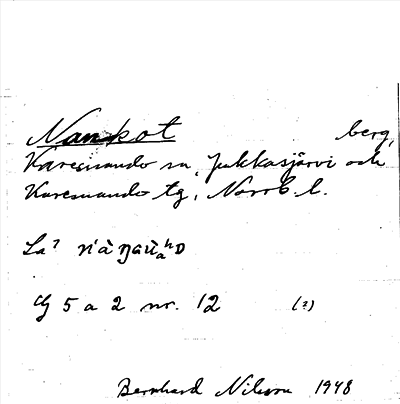 Nankot berg,
Karesuando sn, Jukkasjärvi och
Karesuando tg, Norrb. l.
La?
Cg 5 a 2 nr. 12 (?)
Bernhard Nilsson 1948